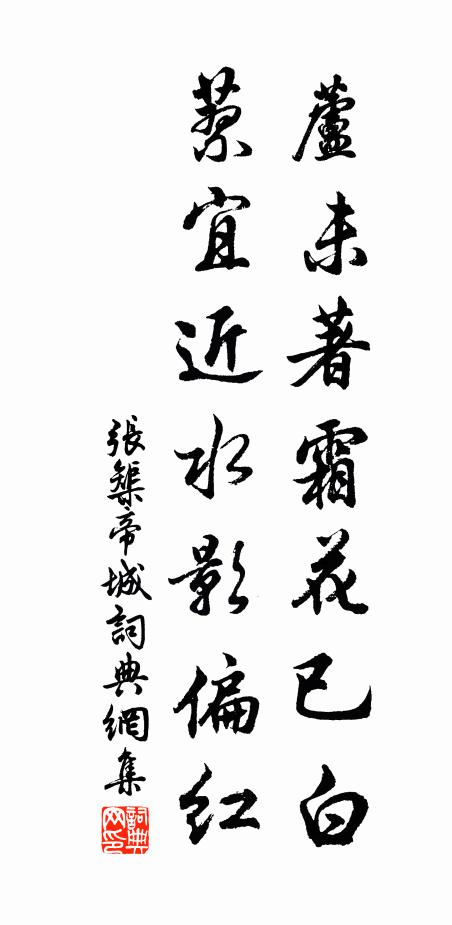 蘆未著霜花已白
蓼宜近水影偏红
張榘帝城詞典網集
詞典网印